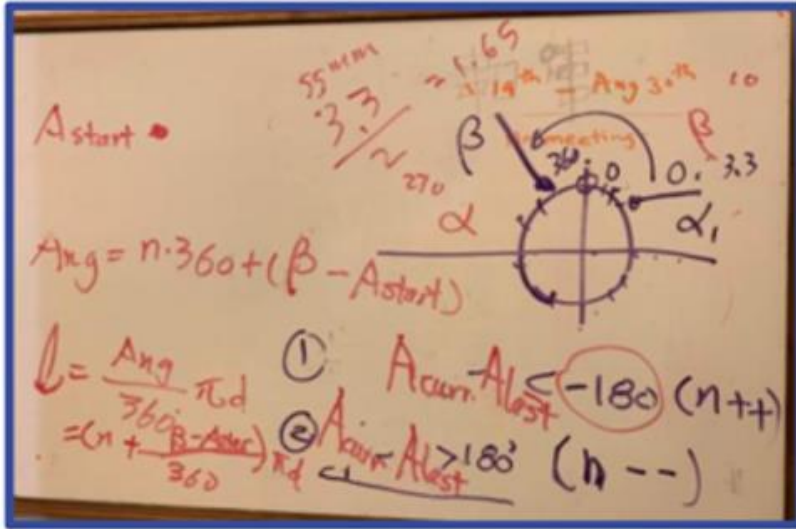 55mm
3.3 = 1.65
~270
19th - Aug 30th
meeting
10
Astart
β
360 0
0. 3.3
β
α
α₁
Ang = n·360 + (β - Astart)
l = Ang / 360 πd
= (n + β - Astar / 360) πd
① Acurr - Alast < -180 (n++)
② Acurr - Alast > 180° (n--)